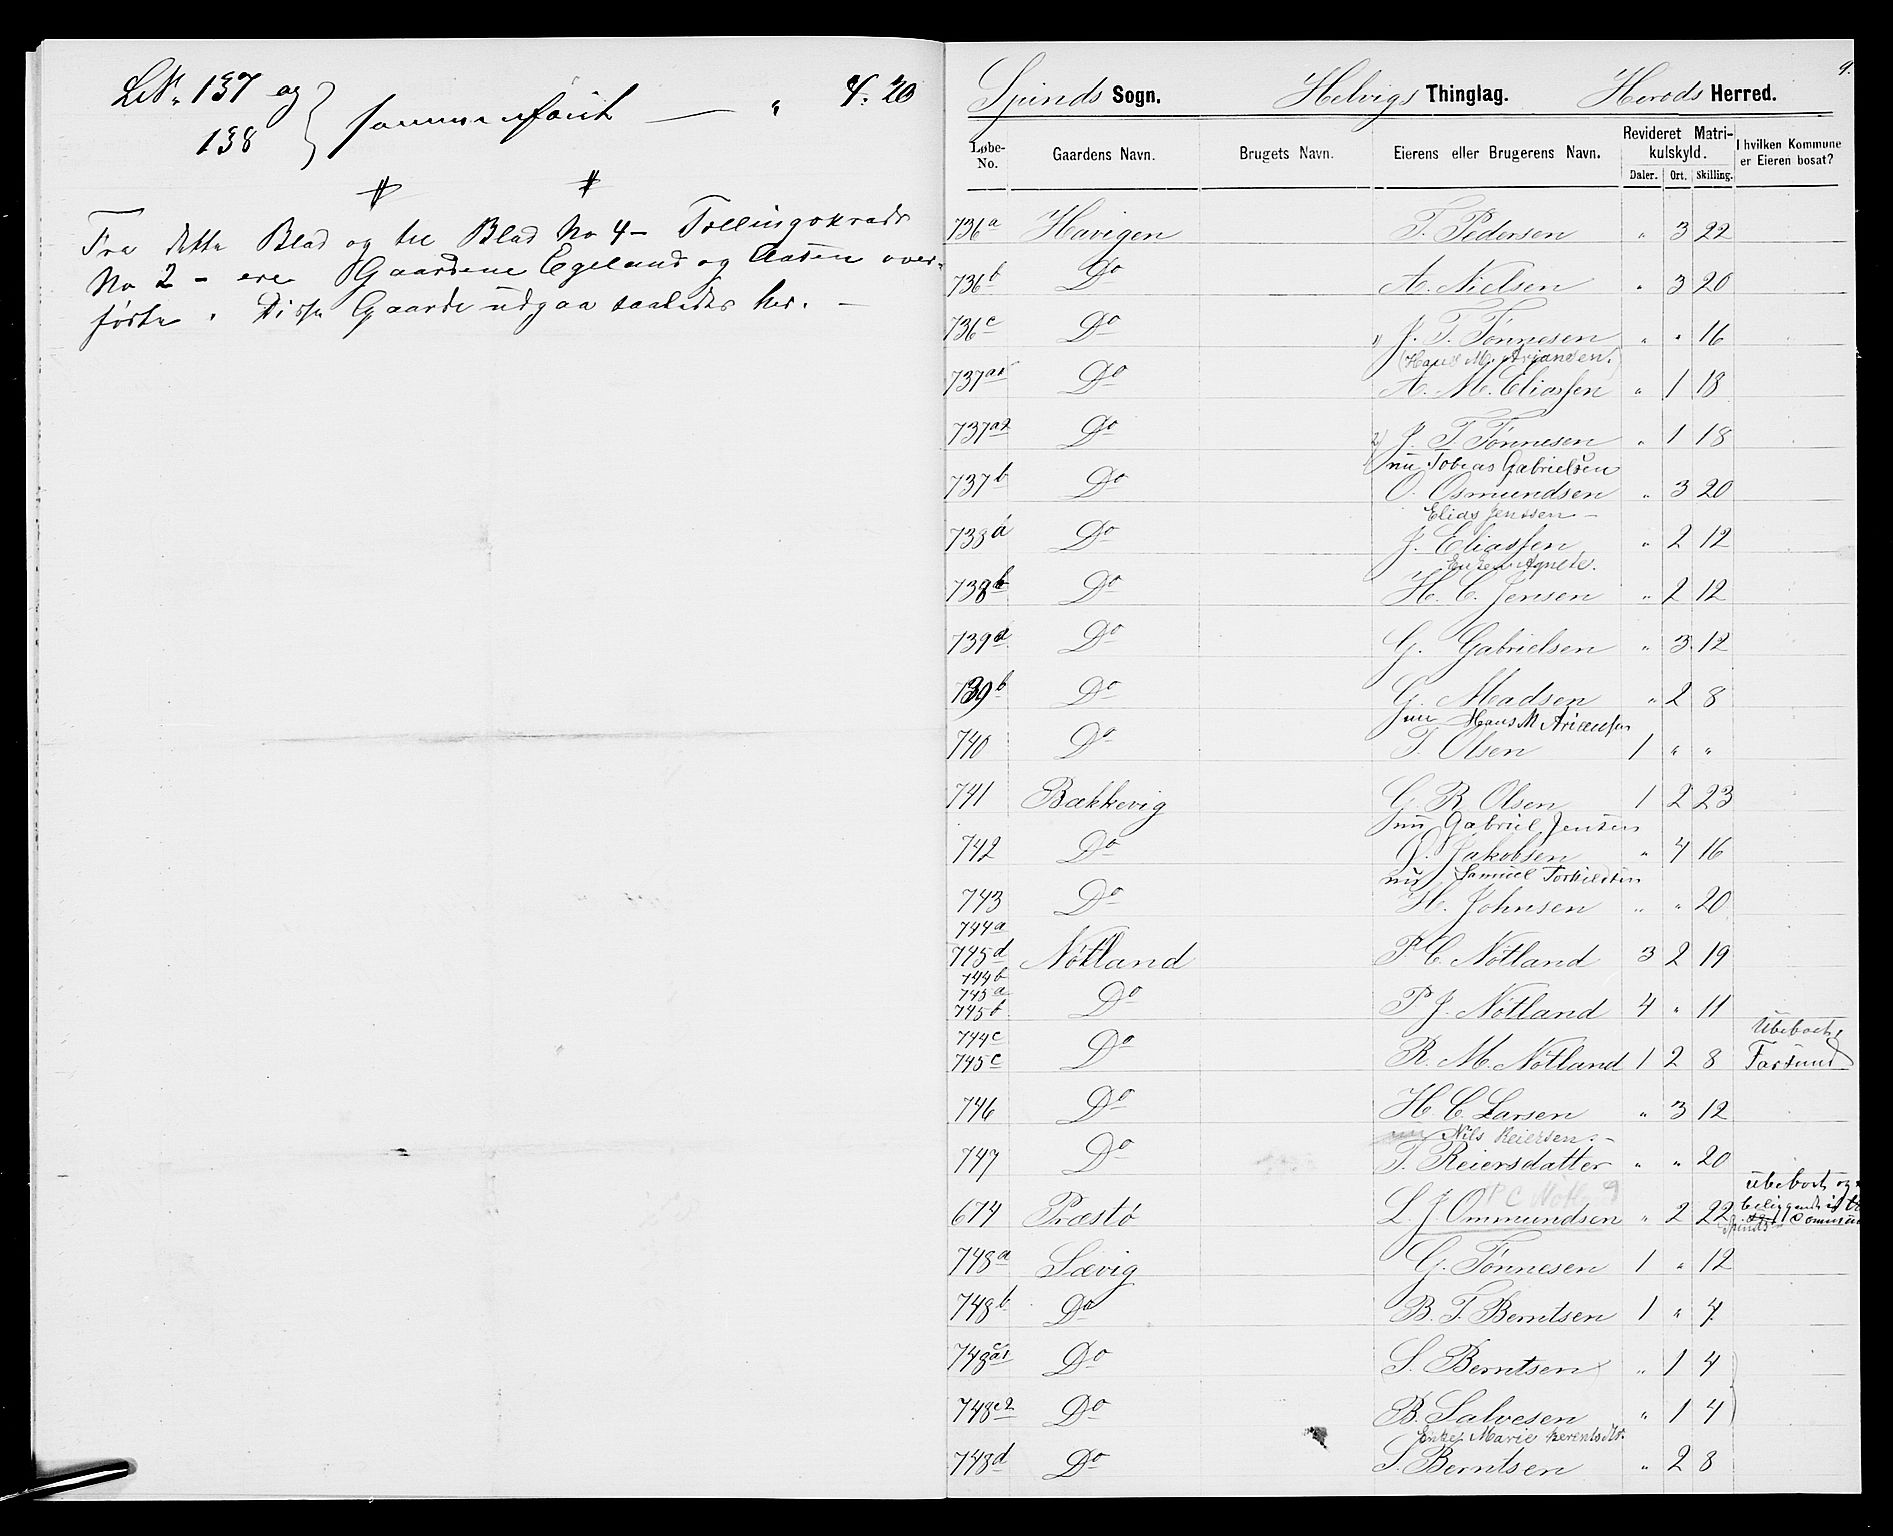 LNr. 137 og
138 } sammenføiet — " 4. 20
Fra dette Blad og til Blad No 4 - Tællingskreds
No 2 - ere Gaardene Egeland og Aasen over-
førte. Disse Gaarde udgaa saaledes her. —
9.
Spinds Sogn. Helvigs Thinglag. Herods Herred.
Løbe-No. Gaardens Navn. Brugets Navn. Eierens eller Brugerens Navn. Revideret Matrikulskyld. Daler. Ort. Skilling. I hvilken Kommune er Eieren bosat?
736a Havigen T. Pedersen " 3 22
736b Do A. Nielsen " 3 20
736c Do 1) J. T. Tønnesen " " 16
(Hans M. Arjansen.)
737a1 Do A. M. Eliassen " 1 18
737a2 Do 2) J. T. Tønnesen " 1 18
nu Tobias Gabrielsen
737b Do O. Osmundsen " 3 20
Elias Jenssen —
738a Do J. Eliassen " 2 12
Enken Agnete.
738b Do H. C. Jensen " 2 12
739a Do G. Gabrielsen " 3 12
739b Do G. Madsen " 2 8
nu Hans M Ariansen
740 Do T. Olsen 1 " "
741 Bækkevig G. R. Olsen 1 2 23
nu Gabriel Jensen
742 Do J. Jakobsen " 4 16
nu Samuel Torkildsen
743 Do H. Johnsen " " 20
744a
745d Nøtland P C Nøtland 3 2 19
744b
745a
745b Do P J. Nøtland 4 " 11
744c Ubeboet,
745c Do R. M. Nøtland 1 2 8 Farsund
746 Do H. C. Larsen " 3 12
nu Nils Reiersen. —
747 Do T. Reiersdatter " " 20
P C Nøtland ubeboet og
674 Præstø L. J. Ommundsen " 2 22 beliggende i
Spinds
748a Sævig G. Tønnesen 1 " 12
748b Do B. T. Berntsen 1 " 4
748c1 Do S. Berntsen " 1 4
748c2 Do B. Salvesen " 1 4
Enke Marie Berentsdtr.
748d Do S. Berntsen " 2 8